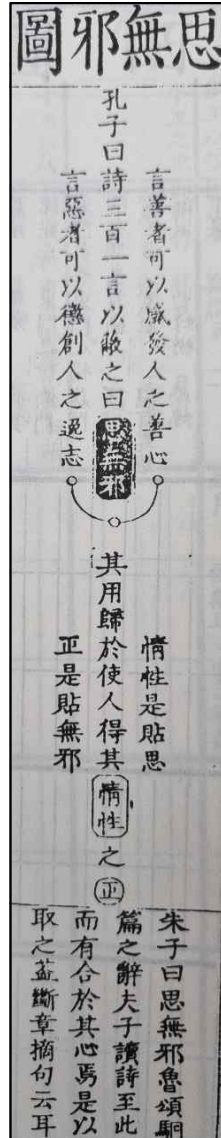 思無邪圖
言善者可以感發人之善心
孔子曰詩三百一言以蔽之曰思無邪
言惡者可以懲創人之逸志
情性是貼思
其用歸於使人得其情性之正
正是貼無邪
朱子曰思無邪魯頌駉
篇之辭夫子讀詩至此
而有合於其心焉是以
取之蓋斷章摘句云耳